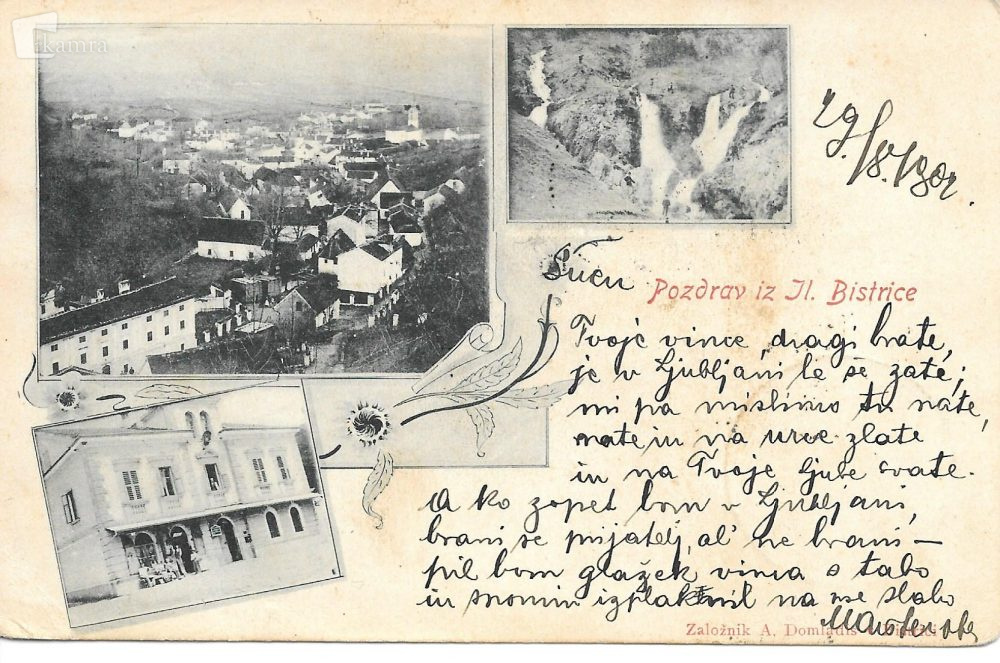 kamra
29/8. 1902.
Pozdrav iz Il. Bistrice
Tvoje vince, dragi brate,
je v Ljubljani le še zate;
mi pa mislimo tu nate,
nate in na urce zlate
in na Tvoje ljube svate.
A ko zopet bom v Ljubljani,
brani se prijatelj, al' ne brani —
pil bom glažek vinca s tabo
in spomin izplaknil na vse slabo
Založnik A. Domladiš